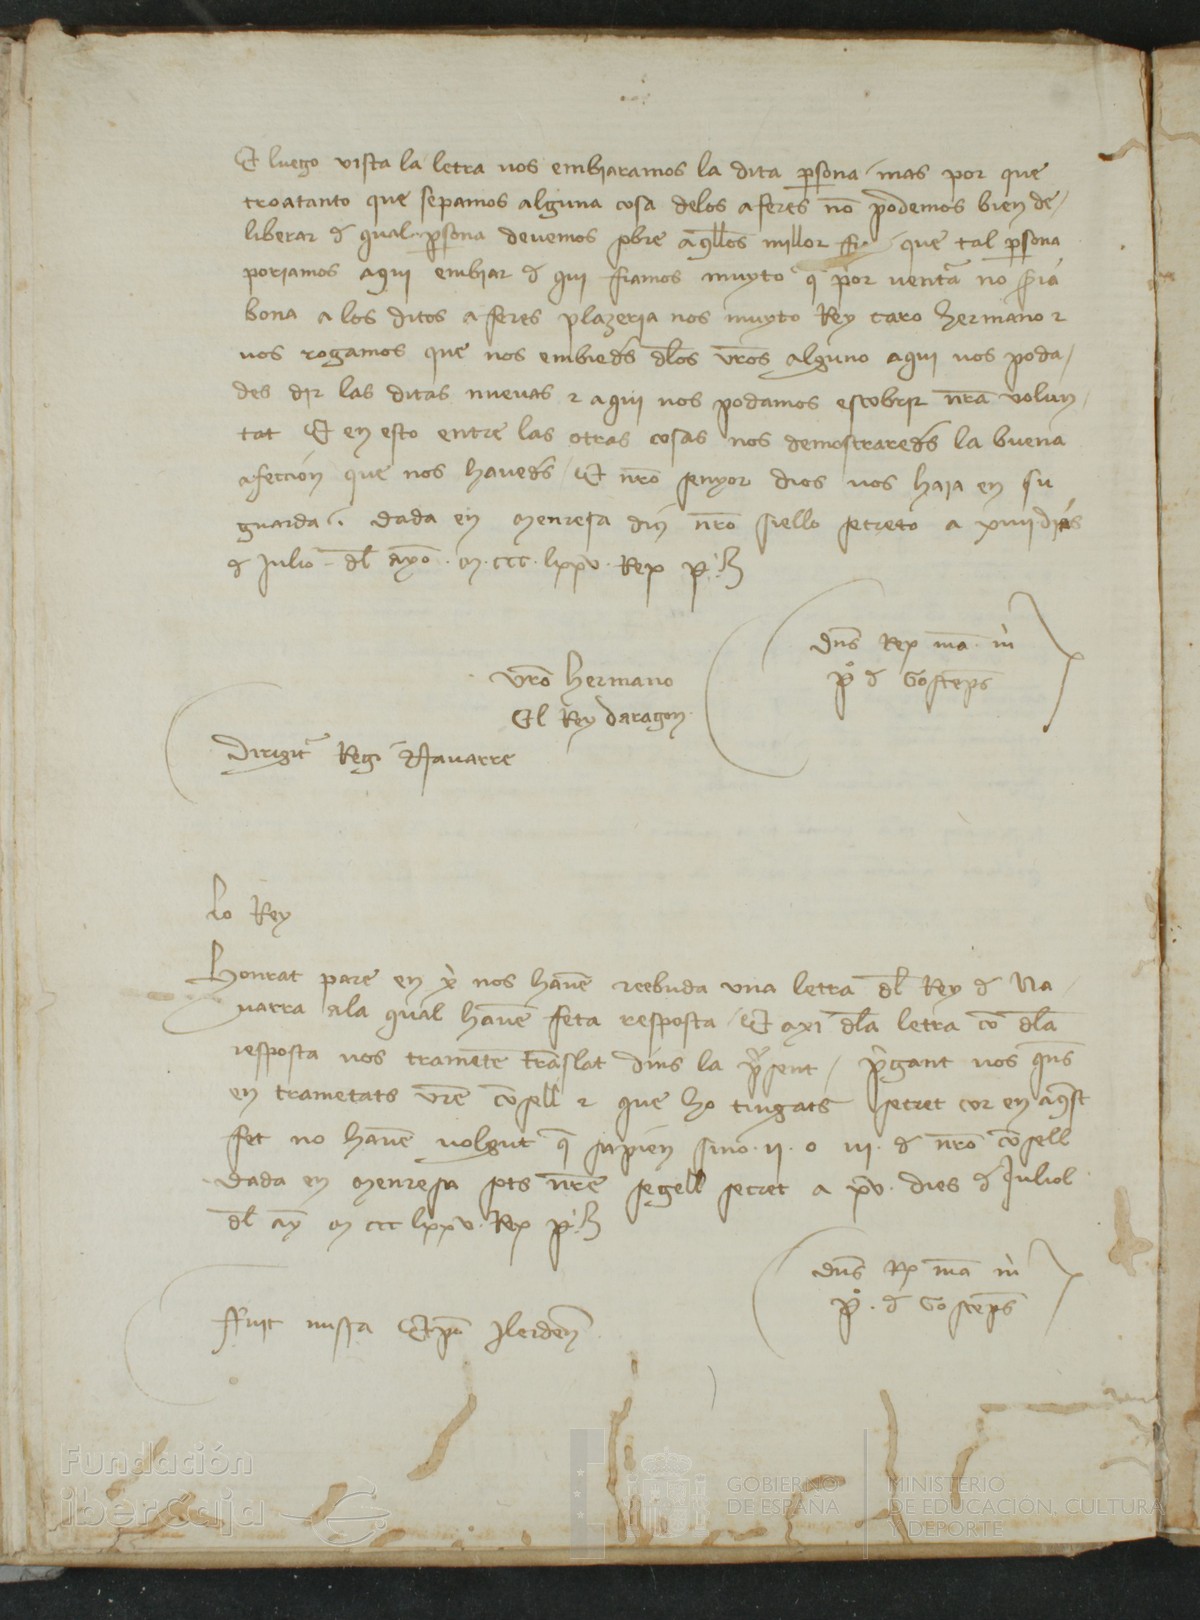 Et luego vista la letra vos embiaramos la dita p̱sona / mas por que
troatanto que sepamos alguna cosa delos aferes nõ podemos bien de/
liberar d qual p̱sona devemos sobre aq̃llos millor / que tal p̱sona
poriamos aqui embiar d qui fiamos muyto q̃ por ventr̃a no s̃ia
bona a los ditos aferes plazeria nos muyto Rey caro hermano z
vos rogamos que nos embieds dl̃os vr̃os alguno aqui vos poda/
des dir las ditas nuevas z aqui vos podamos escobrir nr̃a volun/
tat Et en esto entre las otras cosas nos demostrareds la buena
afeccion que nos haveds / Et nr̃o senyor dios vos haia en su
guarda. dada en Menresa diũ nr̃o siello secreto a xiiii dias
d Julio dl̃ anyõ . M . ccc . lxxv . Rex p̱.
vr̃o hermano
El Rey daragon
dñs Rex mã m
p̱o d Gostemps
Dirigitr̃ Regi Navarre
Lo Rey
Honrat pare en xp̃ nos havẽ reebuda una letra dl̃ Rey d Na/
varra ala qual havẽ feta resposta / Et axi dl̃a letra cõ dl̃a
resposta vos trametẽ trãslat dins la pr̃sent / pr̃gant vos qũs
en trametats vr̃e cõsell z que ho tingats secret cor en aq̃st
fet no havẽ volgut q̃ sapien sino . ii . o iii . d nr̃o cõsell
dada en Menresa sots nr̃e segell secret a xv . dies d Juliol
dl̃ any̰ M ccc lxxv . Rex p̱.
dñs Rx mã m
p̱o . d Gostemps
ffuit missa Ep̃o Ilerdeñ
Fundación
iberCaja
GOBIERNO
DE ESPAÑA
MINISTERIO
DE EDUCACIÓN, CULTURA
Y DEPORTE